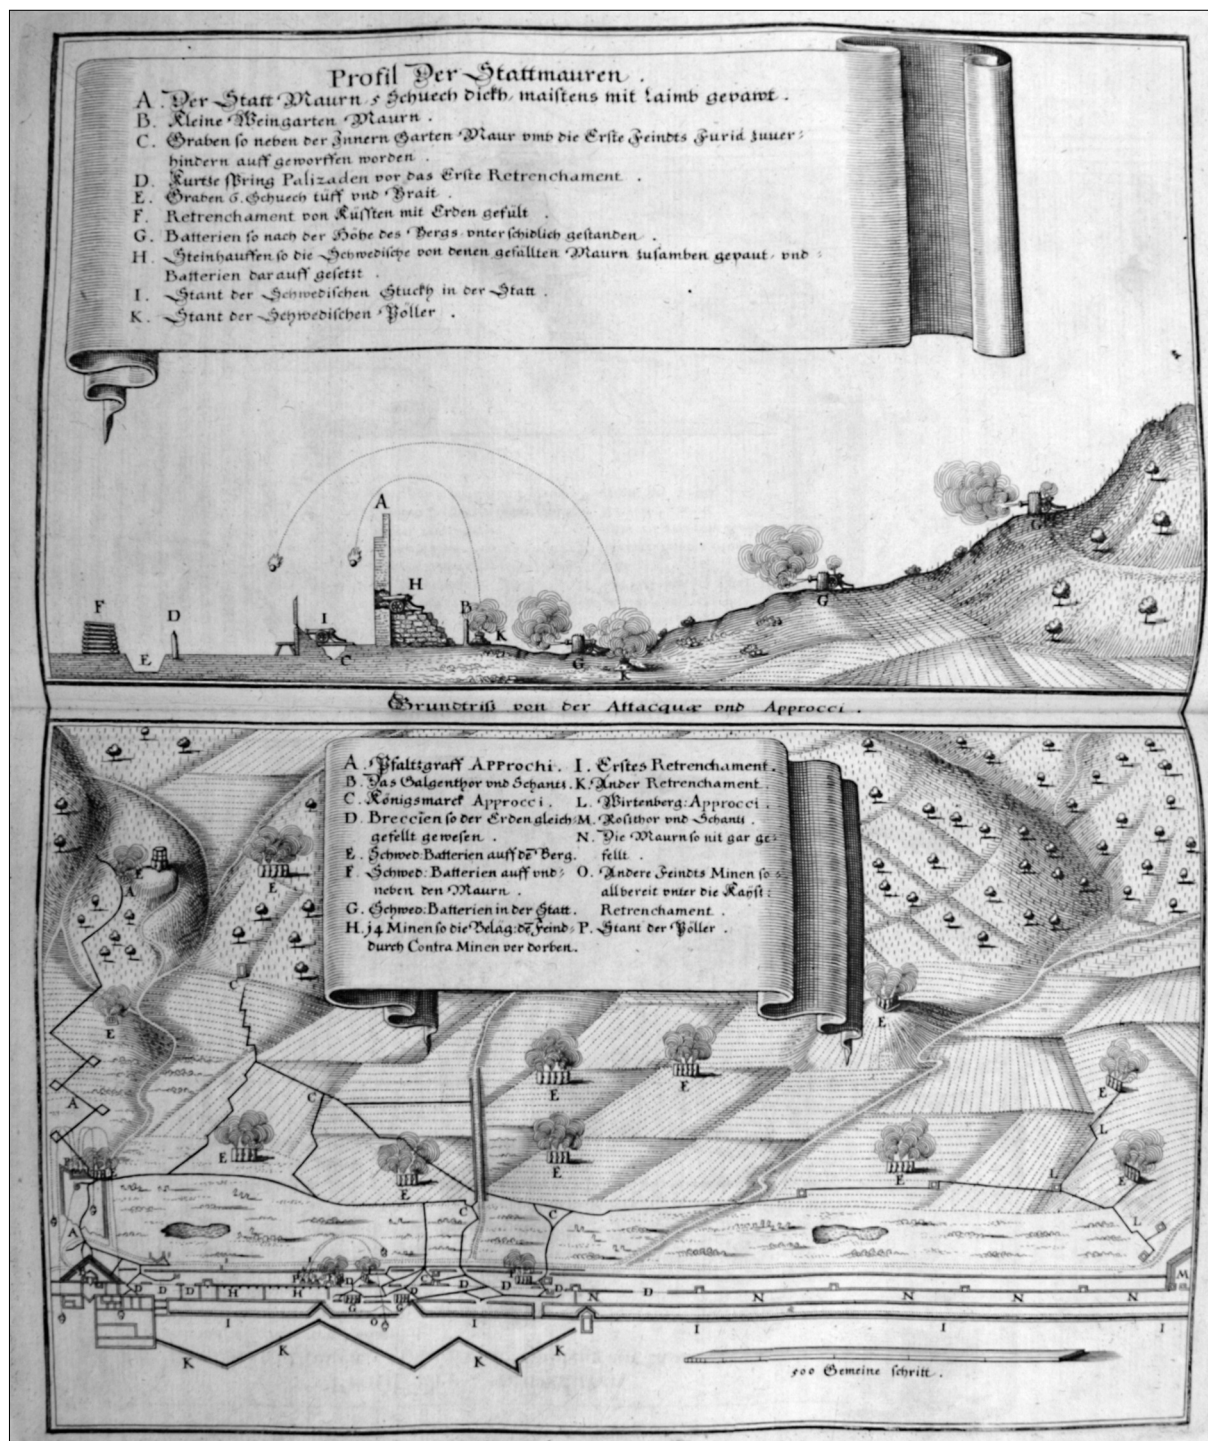 Profil Der Stattmauren.
A. Der Statt Maurn 5 Schuech dickh, maistens mit Laimb gepawt.
B. Kleine Weingarten Maurn.
C. Graben so neben der Innern Garten Maur vmb die Erste Feindts Furia zuuer:
hindern auff geworffen worden.
D. Kurtze spring Palizaden vor das Erste Retrenchament.
E. Graben 6. Schuech tüff vnd Brait.
F. Retrenchament von Küssten mit Erden gefült.
G. Batterien so nach der Höhe des Bergs vnterschidlich gestanden.
H. Steinhauffen so die Schwedische von denen gefällten Maurn zusamben gepaut, vnd
Batterien darauff gesetzt.
I. Stant der Schwedischen Stuckh in der Statt.
K. Stant der Schwedischen Pöller.
G
A
G
F
D
I
H
B
K
E
C
G
K
Grundtriß von der Attacquæ vnd Approcci.
A. Pfaltzgraff Approchi.
B. Das Galgenthor vnd Schantz.
C. Königsmarck Approcci.
D. Breccien so der Erden gleich
gefellt gewesen.
E. Schwed: Batterien auff dē Berg.
F. Schwed: Batterien auff vnd:
neben den Maurn.
G. Schwed: Batterien in der Statt.
H. 14 Minen so die Beläg: dē Feind:
durch Contra Minen verdorben.
I. Erstes Retrenchament.
K. Ander Retrenchament.
L. Wirtenberg: Approcci.
M. Rossthor vnd Schantz.
N. Die Maurn so nit gar ge:
fellt.
O. Andere Feindts Minen so
allbereit vnter die Kayst:
Retrenchament.
P. Stant der Pöller.
E
E
A
C
E
E
E
E
E
A
C
L
E
E
E
E
E
L
E
A
C
C
L
M
D
D
D
H
H
D
D
D
D
N
D
N
N
N
N
G
G
I
O
I
I
I
I
K
K
K
K
500 Gemeine schritt.